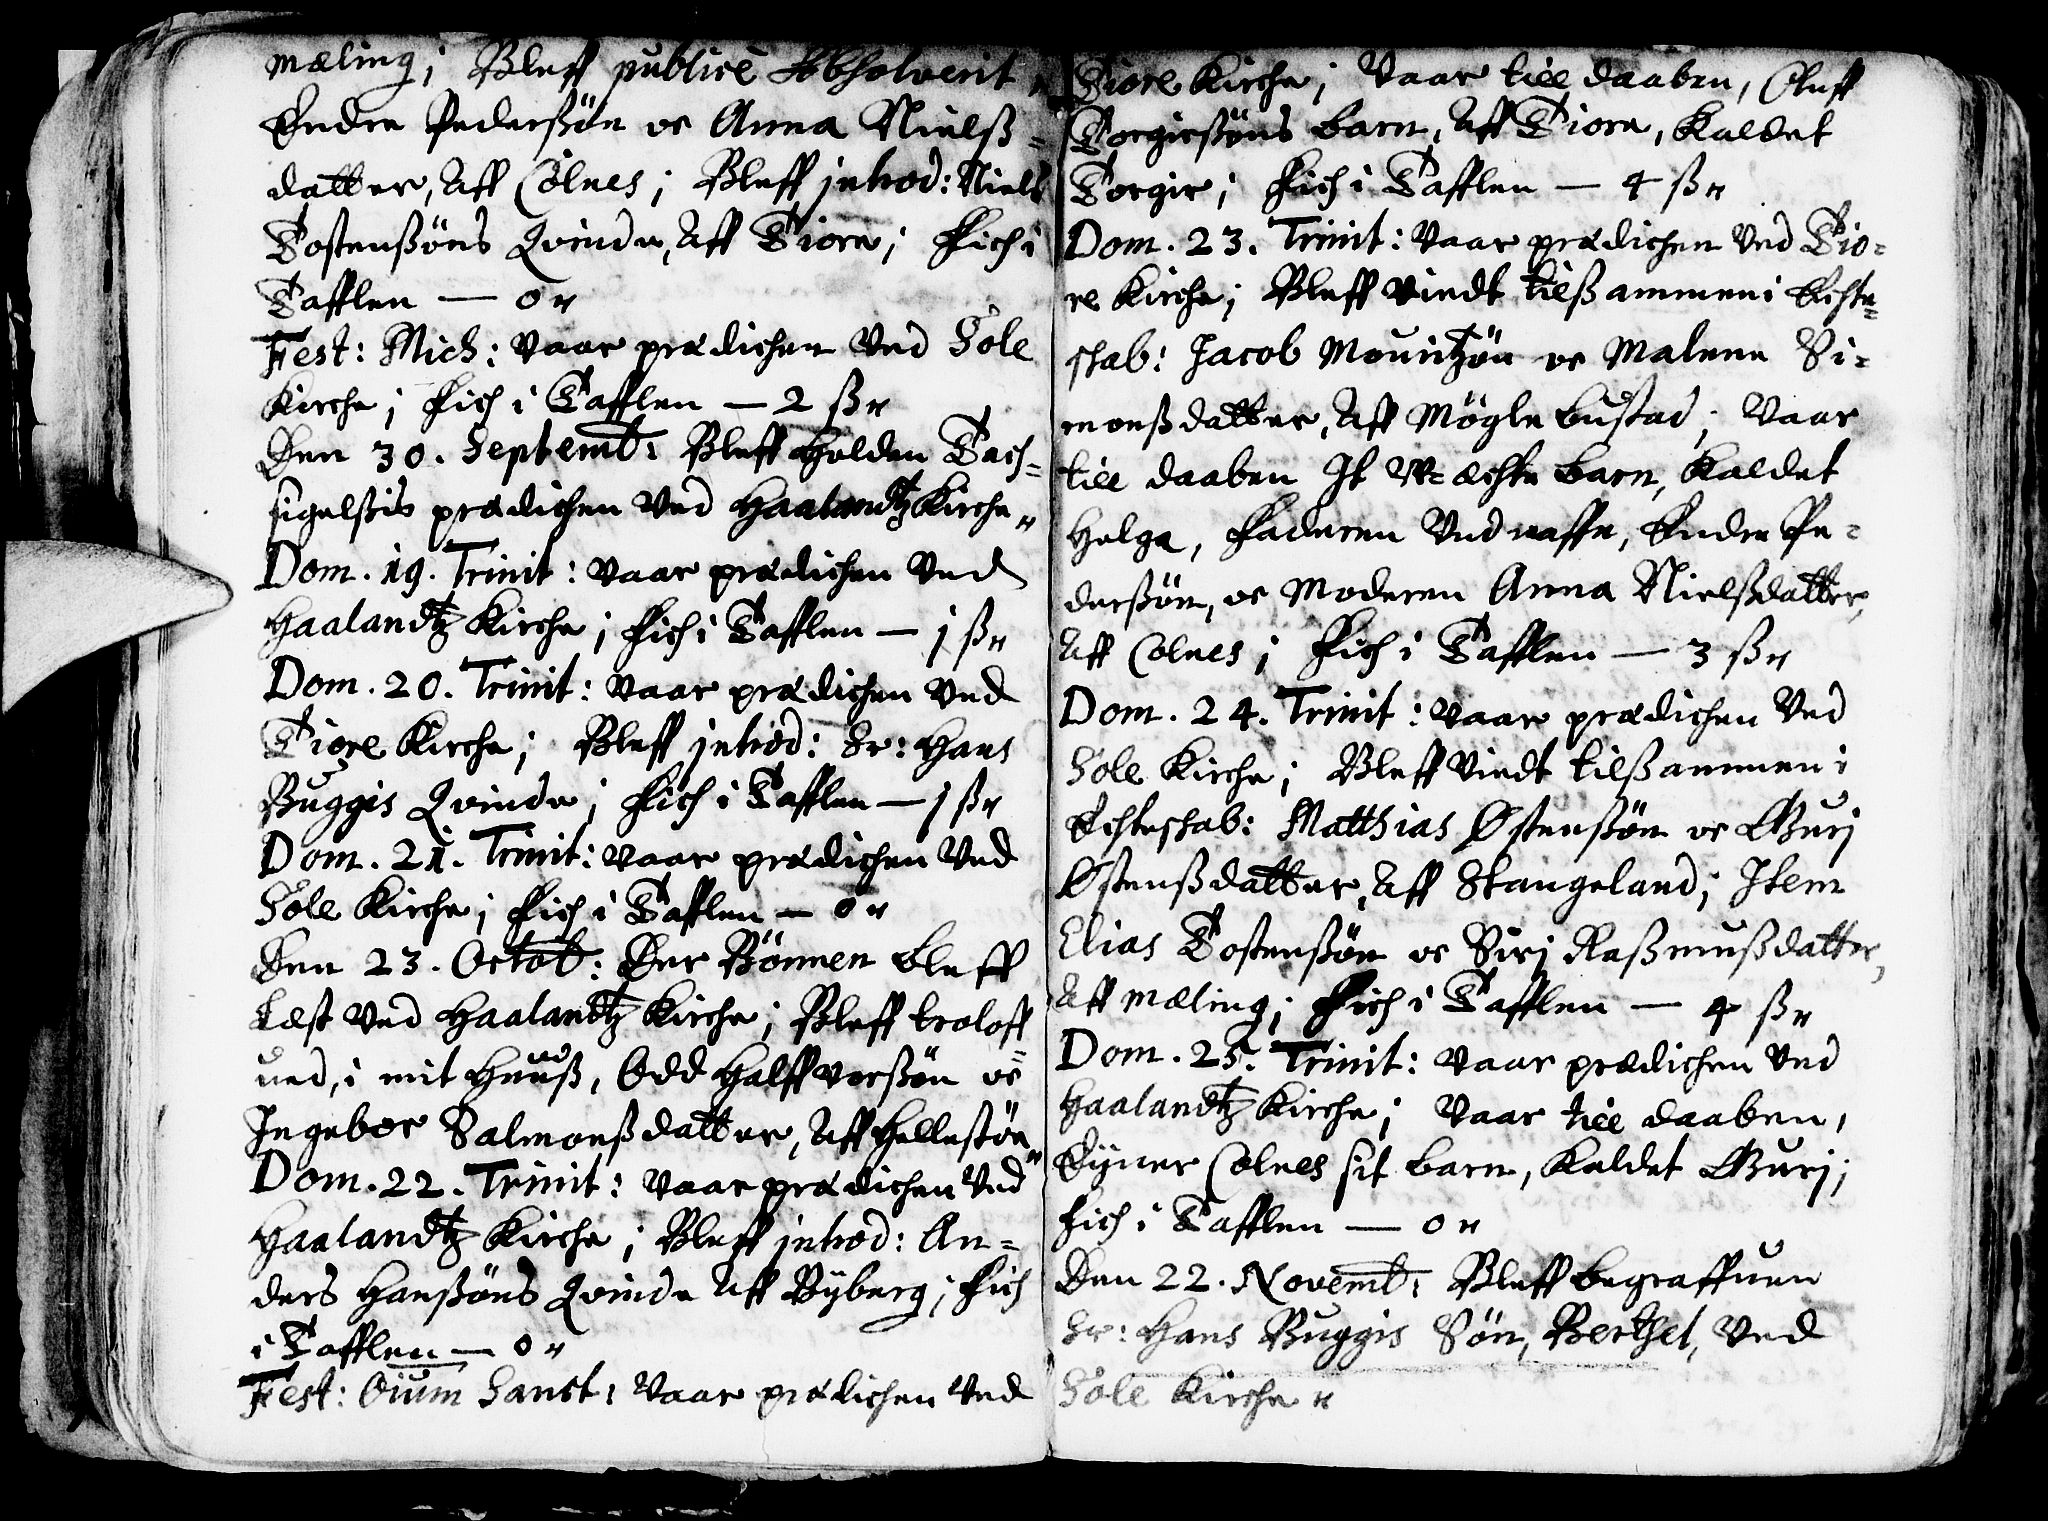 mæling; Bleff publicè Abholverit,,
Endre Pederßøn oc Anna Nielß=
datter, Aff Colnes; Bleff introd: Niels
Tostenßøns Qvinde, Aff Tiora; Fich i
Tafflen — 0 ,,
Fest: Mich: Vaar prædichen Ved Sole
Kirche; Fich i Tafflen — 2 ß ,,
Den 30. Septemb: Bleff Holden Tach=
sigelßis prædichen Ved Haalandtz Kirche ,,
Dom. 19. Trinit: Vaar prædichen Ved
Haalandtz Kirche; Fich i Tafflen — j ß ,,
Dom. 20. Trinit: Vaar prædichen Ved
Tiore Kirche; Bleff introd: Sr: Hans
Buggis Qvinde; Fich i Tafflen — j ß ,,
Dom. 21. Trinit: Vaar prædichen Ved
Sole Kirche; Fich i Tafflen — 0 ,,
Den 23. Octob: Der Bønnen bleff
Læst Ved Haalandtz Kirche; Bleff troloff
ued, i mit Huuß, Odd Halffvorßøn oc=
Ingebor Salmonßdatter, Aff Hellestøe ,,
Dom. 22. Trinit: Vaar prædichen Ved
Haalandtz Kirche; Bleff introd: An=
ders Hanßøns Qvinde Aff Ryberg; Fich
i Tafflen — 0 ,,
Fest: Oium Sanct: Vaar prædichen Ved
Tiore Kirche; Vaar till daaben, Oluff
Torgirßøns barn, Aff Tiora, Kaldet
Torgir; Fich i Tafflen — 4 ß ,,
Dom. 23. Trinit: Vaar prædichen Ved Tio=
re Kirche; Bleff Viedt tilßammen i Echte=
skab: Jacob Mouritzøn oc Malene Si=
monßdatter, Aff Møglebustad; Vaar
till daaben It U=ächte barn, Kaldet
Helga, Faderen Vedraffte, Endre Pe=
derßøn, oc Moderen Anna Nielßdatter,
Aff Colnes; Fich i Tafflen — 3 ß ,,
Dom. 24. Trinit: Vaar prædichen Ved
Sole Kirche; Bleff Viedt tilßammen i
Echteskab: Matthias Østenßøn oc Gurj
Østenßdatter, Aff Stangeland; Item
Elias Tostenßøn oc Sirj Raßmußdatter,
Aff mæling; Fich i Tafflen — 4 ß ,,
Dom. 25. Trinit: Vaar prædichen Ved
Haalandtz Kirche; Vaar till daaben,
Eyner Colnes sit barn, Kaldet Gurj;
Fich i Tafflen — 0 ,,
Den 22. Novemb: Bleff begraffuen
Sr: Hans Buggis Søn, Berthel, Ved
Sole Kirche ,,